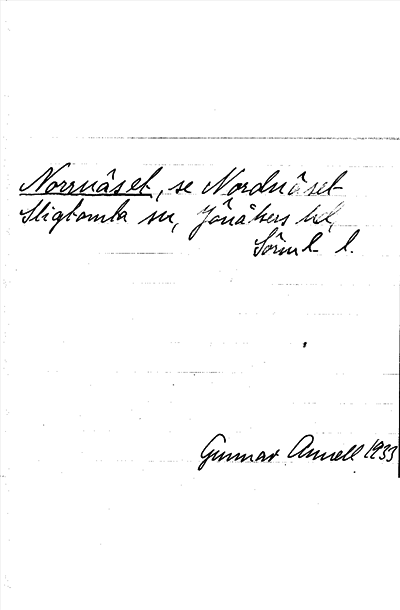 Norrnäset, se Nordnäset
Stigtomta sn, Jönåkers hd,
Sörml l.
Gunnar Annell 1933